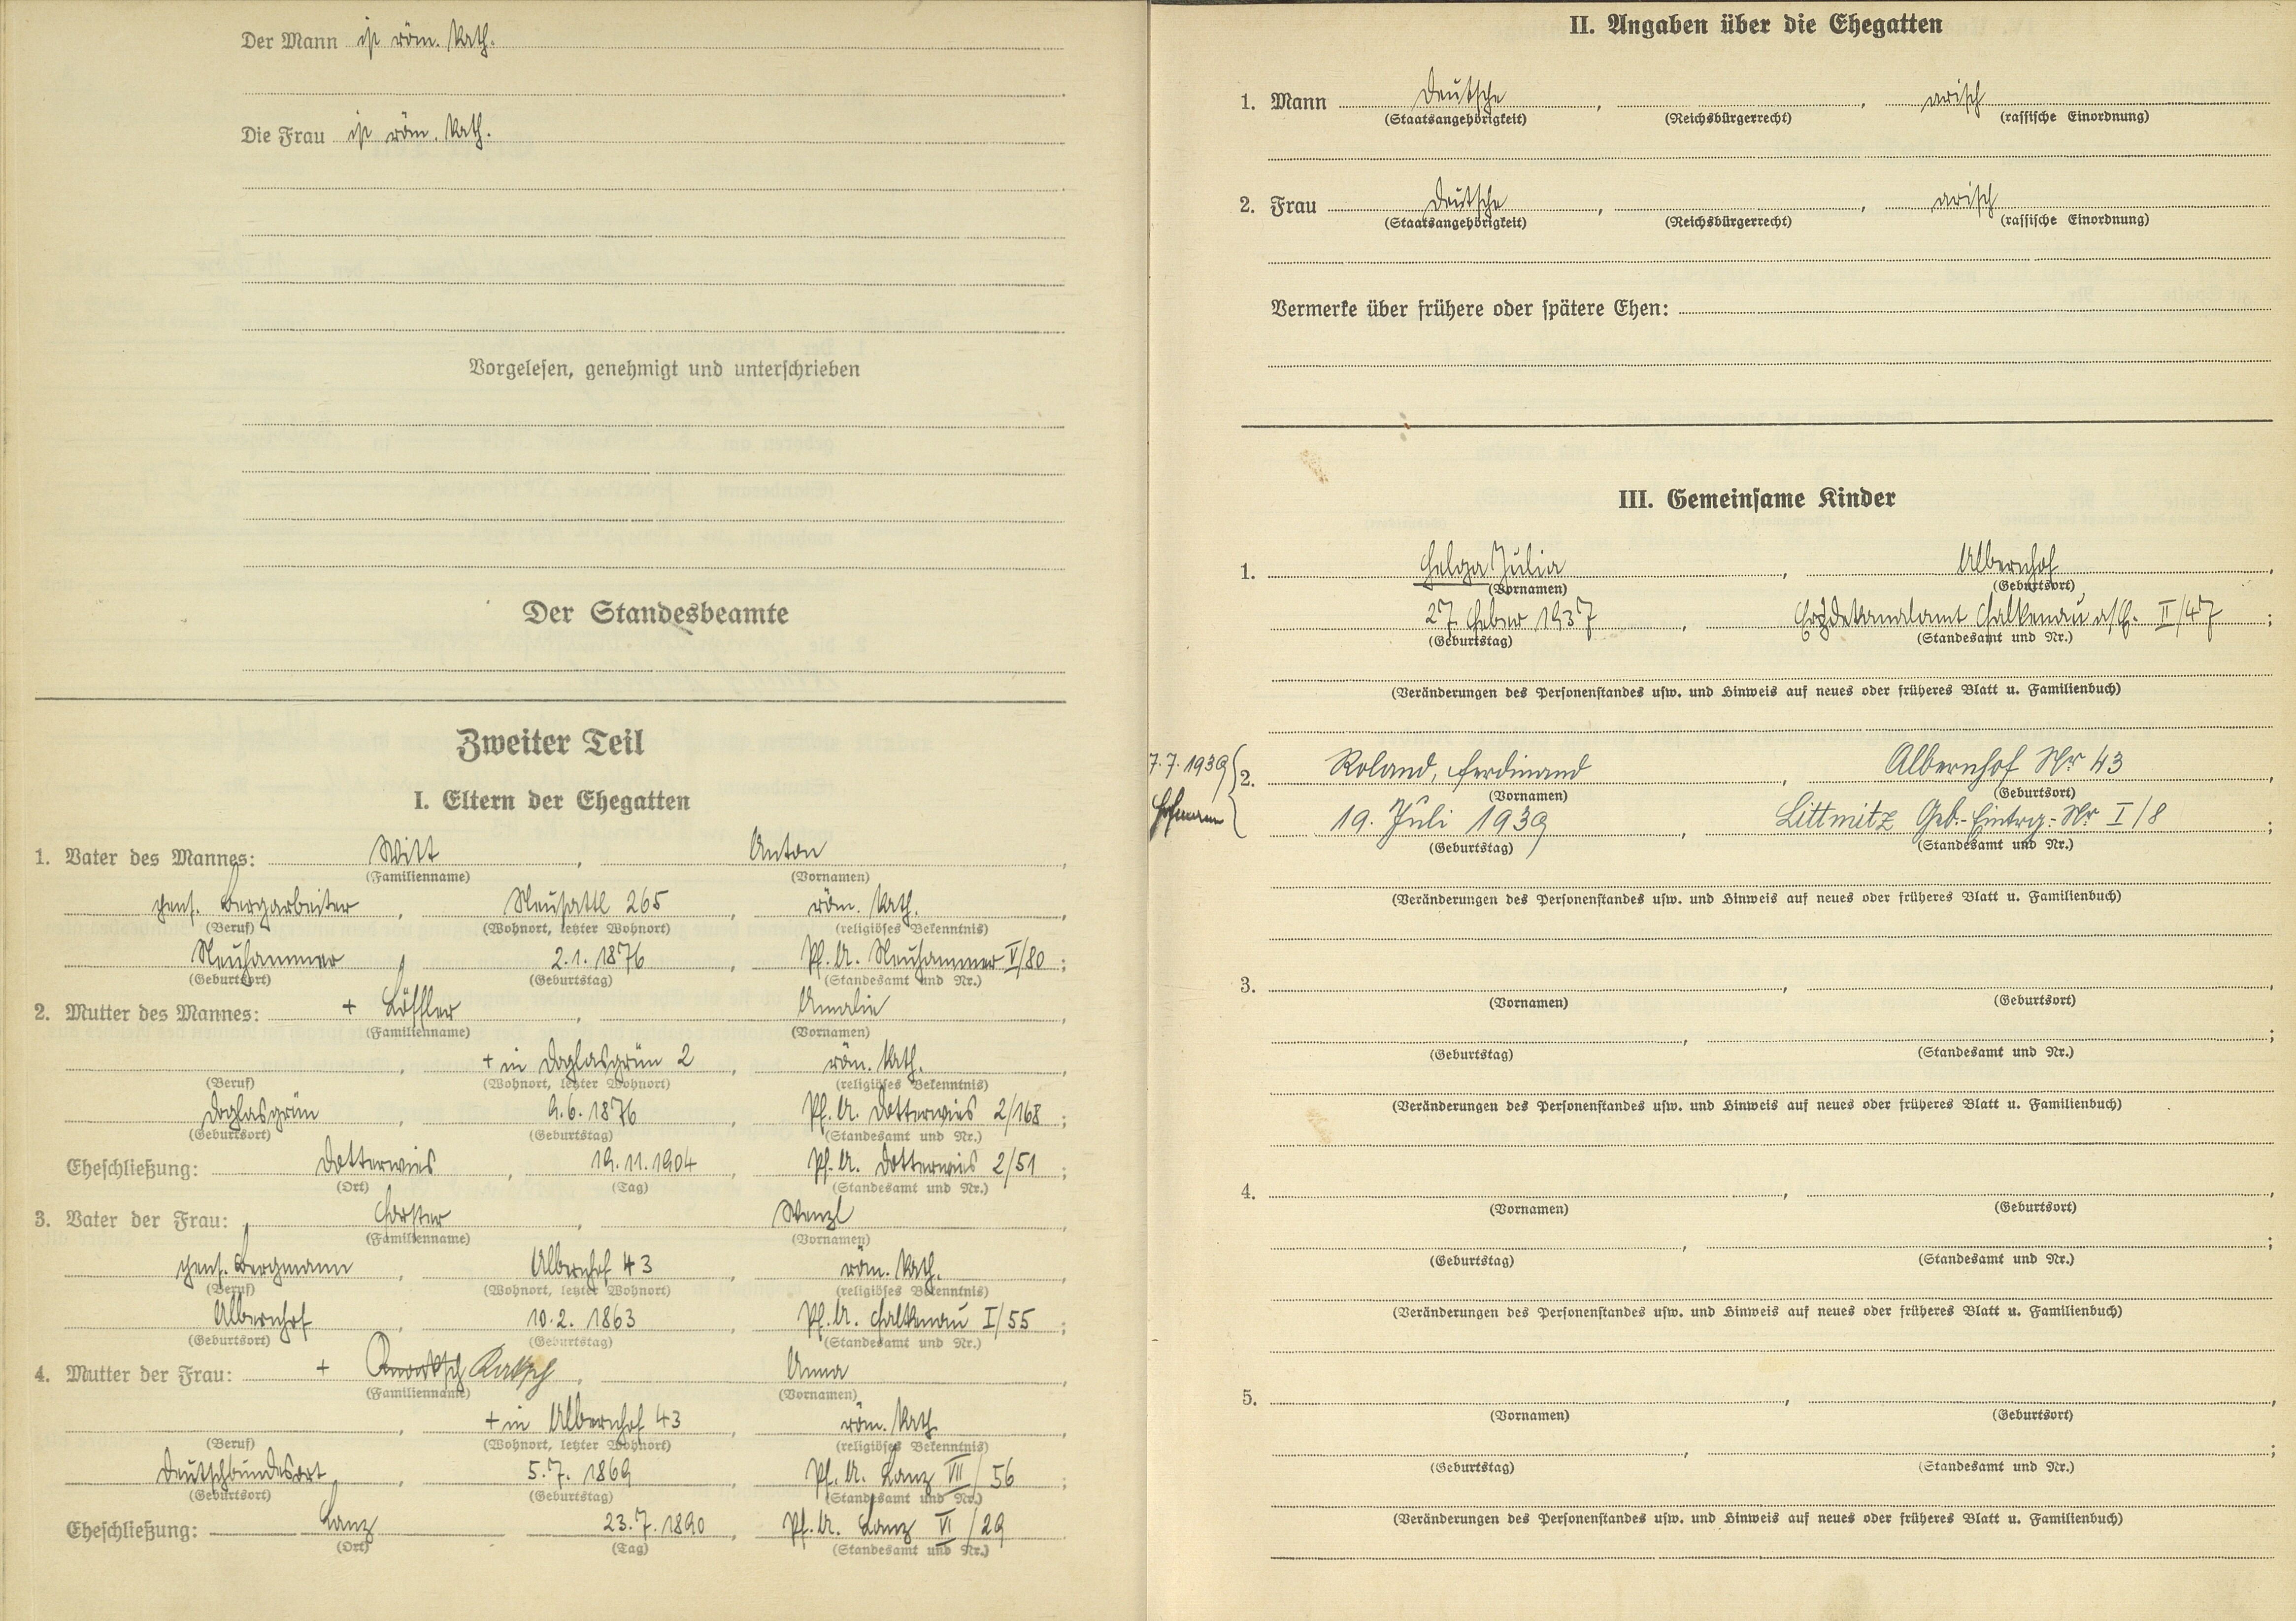 Der Mann ist röm. kath.
Die Frau ist röm. kath.
Vorgelesen, genehmigt und unterschrieben
Der Standesbeamte
Zweiter Teil
I. Eltern der Ehegatten
1. Vater des Mannes: Witt, Anton,
(Familienname) (Vornamen)
pens. Bergarbeiter, Neusattl 265, röm. kath.,
(Beruf) (Wohnort, letzter Wohnort) (religiöses Bekenntnis)
Neuhammer, 2.1.1876, Pf. A. Neuhammer V/80;
(Geburtsort) (Geburtstag) (Standesamt und Nr.)
2. Mutter des Mannes: + Löffler, Amalie,
(Familienname) (Vornamen)
, + in Doglasgrün 2, röm. kath.,
(Beruf) (Wohnort, letzter Wohnort) (religiöses Bekenntnis)
Doglasgrün, 9.6.1876, Pf. A. Dotterwies 2/168;
(Geburtsort) (Geburtstag) (Standesamt und Nr.)
Eheschließung: Dotterwies, 19.11.1904, Pf. A. Dotterwies 2/51;
(Ort) (Tag) (Standesamt und Nr.)
3. Vater der Frau: Forster, Wenzl,
(Familienname) (Vornamen)
pens. Bergmann, Albernhof 43, röm. kath.,
(Beruf) (Wohnort, letzter Wohnort) (religiöses Bekenntnis)
Albernhof, 10.2.1863, Pf. A. Falkenau I/55;
(Geburtsort) (Geburtstag) (Standesamt und Nr.)
4. Mutter der Frau: +, Anna,
(Familienname) (Vornamen)
, + in Albernhof 43, röm. kath.,
(Beruf) (Wohnort, letzter Wohnort) (religiöses Bekenntnis)
, 5.7.1869, Pf. A. Lanz VII/56;
(Geburtsort) (Geburtstag) (Standesamt und Nr.)
Eheschließung: Lanz 23.7.1890, Pf. A. Lanz VI/29
(Ort) (Tag) (Standesamt und Nr.)
II. Angaben über die Ehegatten
1. Mann Deutsche, , arisch
(Staatsangehörigkeit) (Reichsbürgerrecht) (rassische Einordnung)
2. Frau Deutsche, , arisch
(Staatsangehörigkeit) (Reichsbürgerrecht) (rassische Einordnung)
Vermerke über frühere oder spätere Ehen:
III. Gemeinsame Kinder
1. Helga Julia, Albernhof,
(Vornamen) (Geburtsort)
27. Feber 1937, Erzdekanalamt Falkenau a/E. II/47;
(Geburtstag) (Standesamt und Nr.)
(Veränderungen des Personenstandes usw. und Hinweis auf neues oder früheres Blatt u. Familienbuch)
7.7.1939
2. Roland, Ferdinand, Albernhof Nr 43,
(Vornamen) (Geburtsort)
Hofmann
19. Juli 1939, Littmitz Geb.-Eintrg.-Nr I/8;
(Geburtstag) (Standesamt und Nr.)
(Veränderungen des Personenstandes usw. und Hinweis auf neues oder früheres Blatt u. Familienbuch)
3. , ,
(Vornamen) (Geburtsort)
, ;
(Geburtstag) (Standesamt und Nr.)
(Veränderungen des Personenstandes usw. und Hinweis auf neues oder früheres Blatt u. Familienbuch)
4. , ,
(Vornamen) (Geburtsort)
, ;
(Geburtstag) (Standesamt und Nr.)
(Veränderungen des Personenstandes usw. und Hinweis auf neues oder früheres Blatt u. Familienbuch)
5. , ,
(Vornamen) (Geburtsort)
, ;
(Geburtstag) (Standesamt und Nr.)
(Veränderungen des Personenstandes usw. und Hinweis auf neues oder früheres Blatt u. Familienbuch)